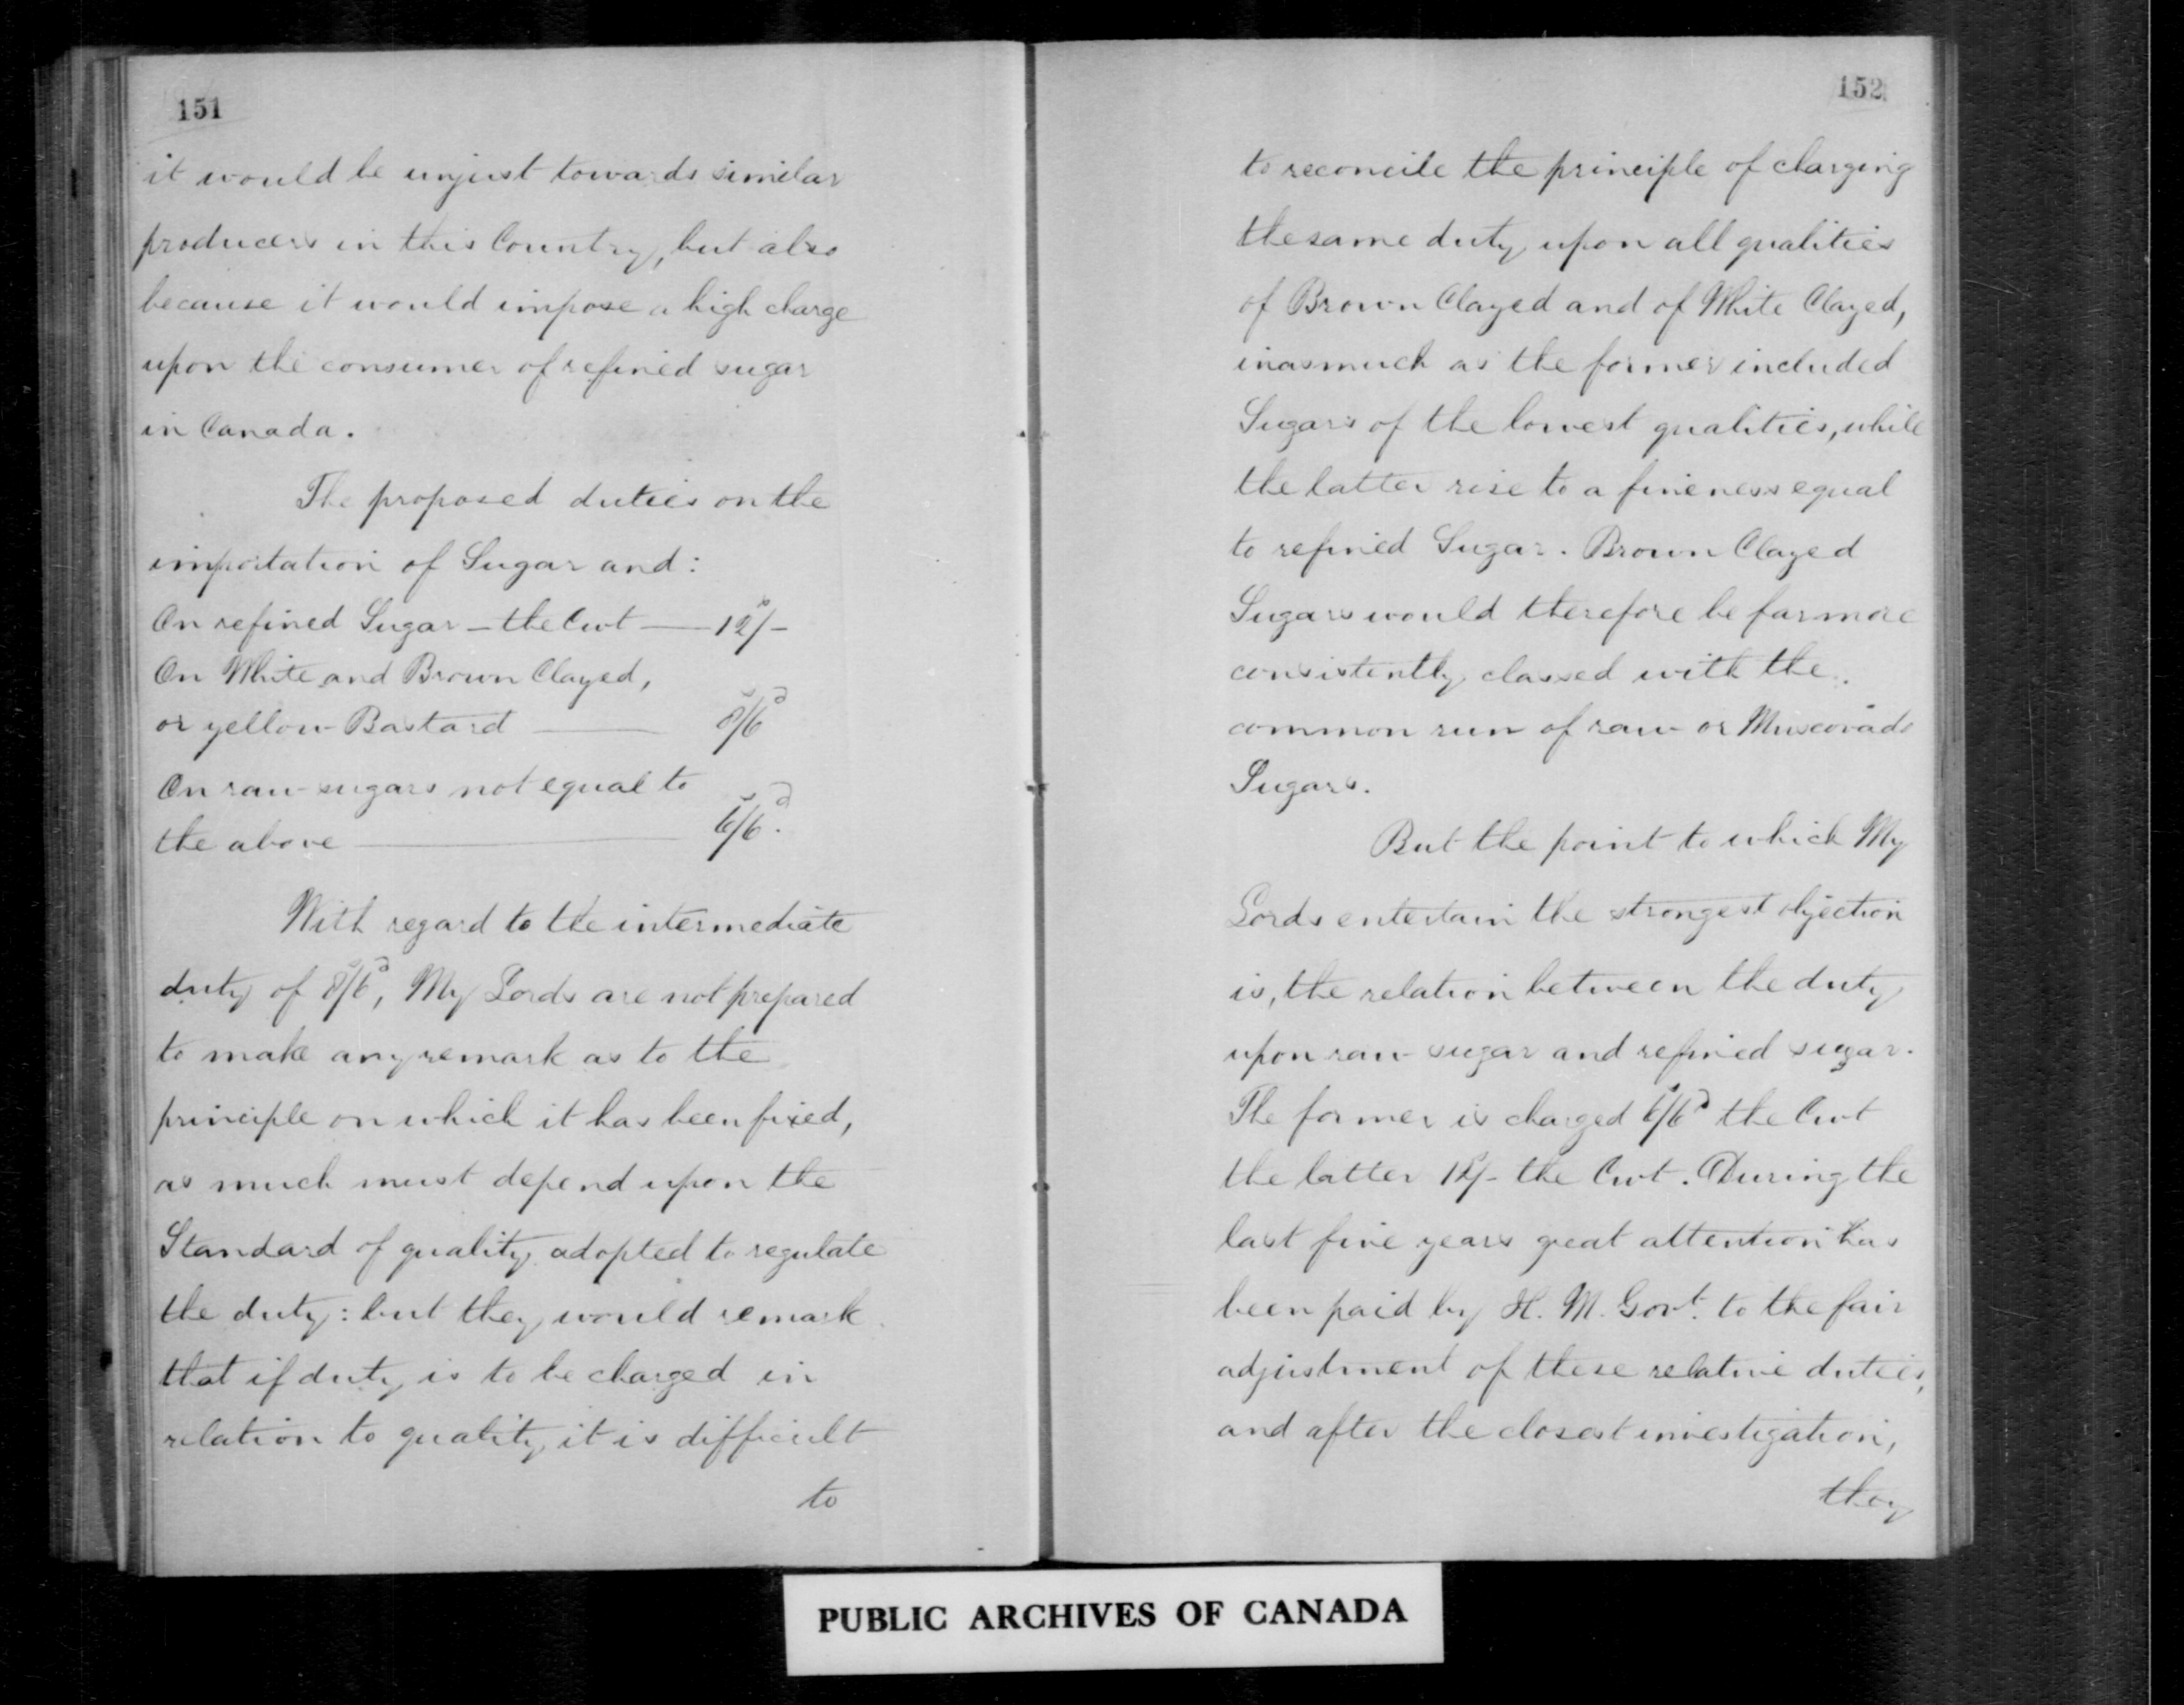 151
it would be unjust towards similar
producers in this Country, but also
because it would impose a high charge
upon the consumer of refined sugar
in Canada.
The proposed duties on the
importation of Sugar and:
On refined Sugar - the Cwt — 12/-
On White and Brown Clayed,
or yellow Bastard — 8/6d
On raw sugars not equal to
the above — 6/6d.
With regard to the intermediate
duty of 8/6d, My Lords are not prepared
to make any remark as to the
principle on which it has been fixed,
as much must depend upon the
Standard of quality adopted to regulate
the duty: but they would remark
that if duty is to be charged in
relation to quality, it is difficult
to
152
to reconcile the principle of charging
the same duty upon all qualities
of Brown Clayed and of White Clayed,
inasmuch as the former included
Sugars of the lowest qualities, while
the latter rise to a fineness equal
to refined Sugar. Brown Clayed
Sugars would therefore be far more
consistently classed with the
common run of raw or Muscovado
Sugars.
But the point to which My
Lords entertain the strongest objection
is, the relation between the duty
upon raw sugar and refined sugar.
The former is charged 6/6d the Cwt
the latter 12/- the Cwt. During the
last five years great attention has
been paid by H. M. Govt. to the fair
adjustment of these relative duties,
and after the closest investigation,
they
PUBLIC ARCHIVES OF CANADA